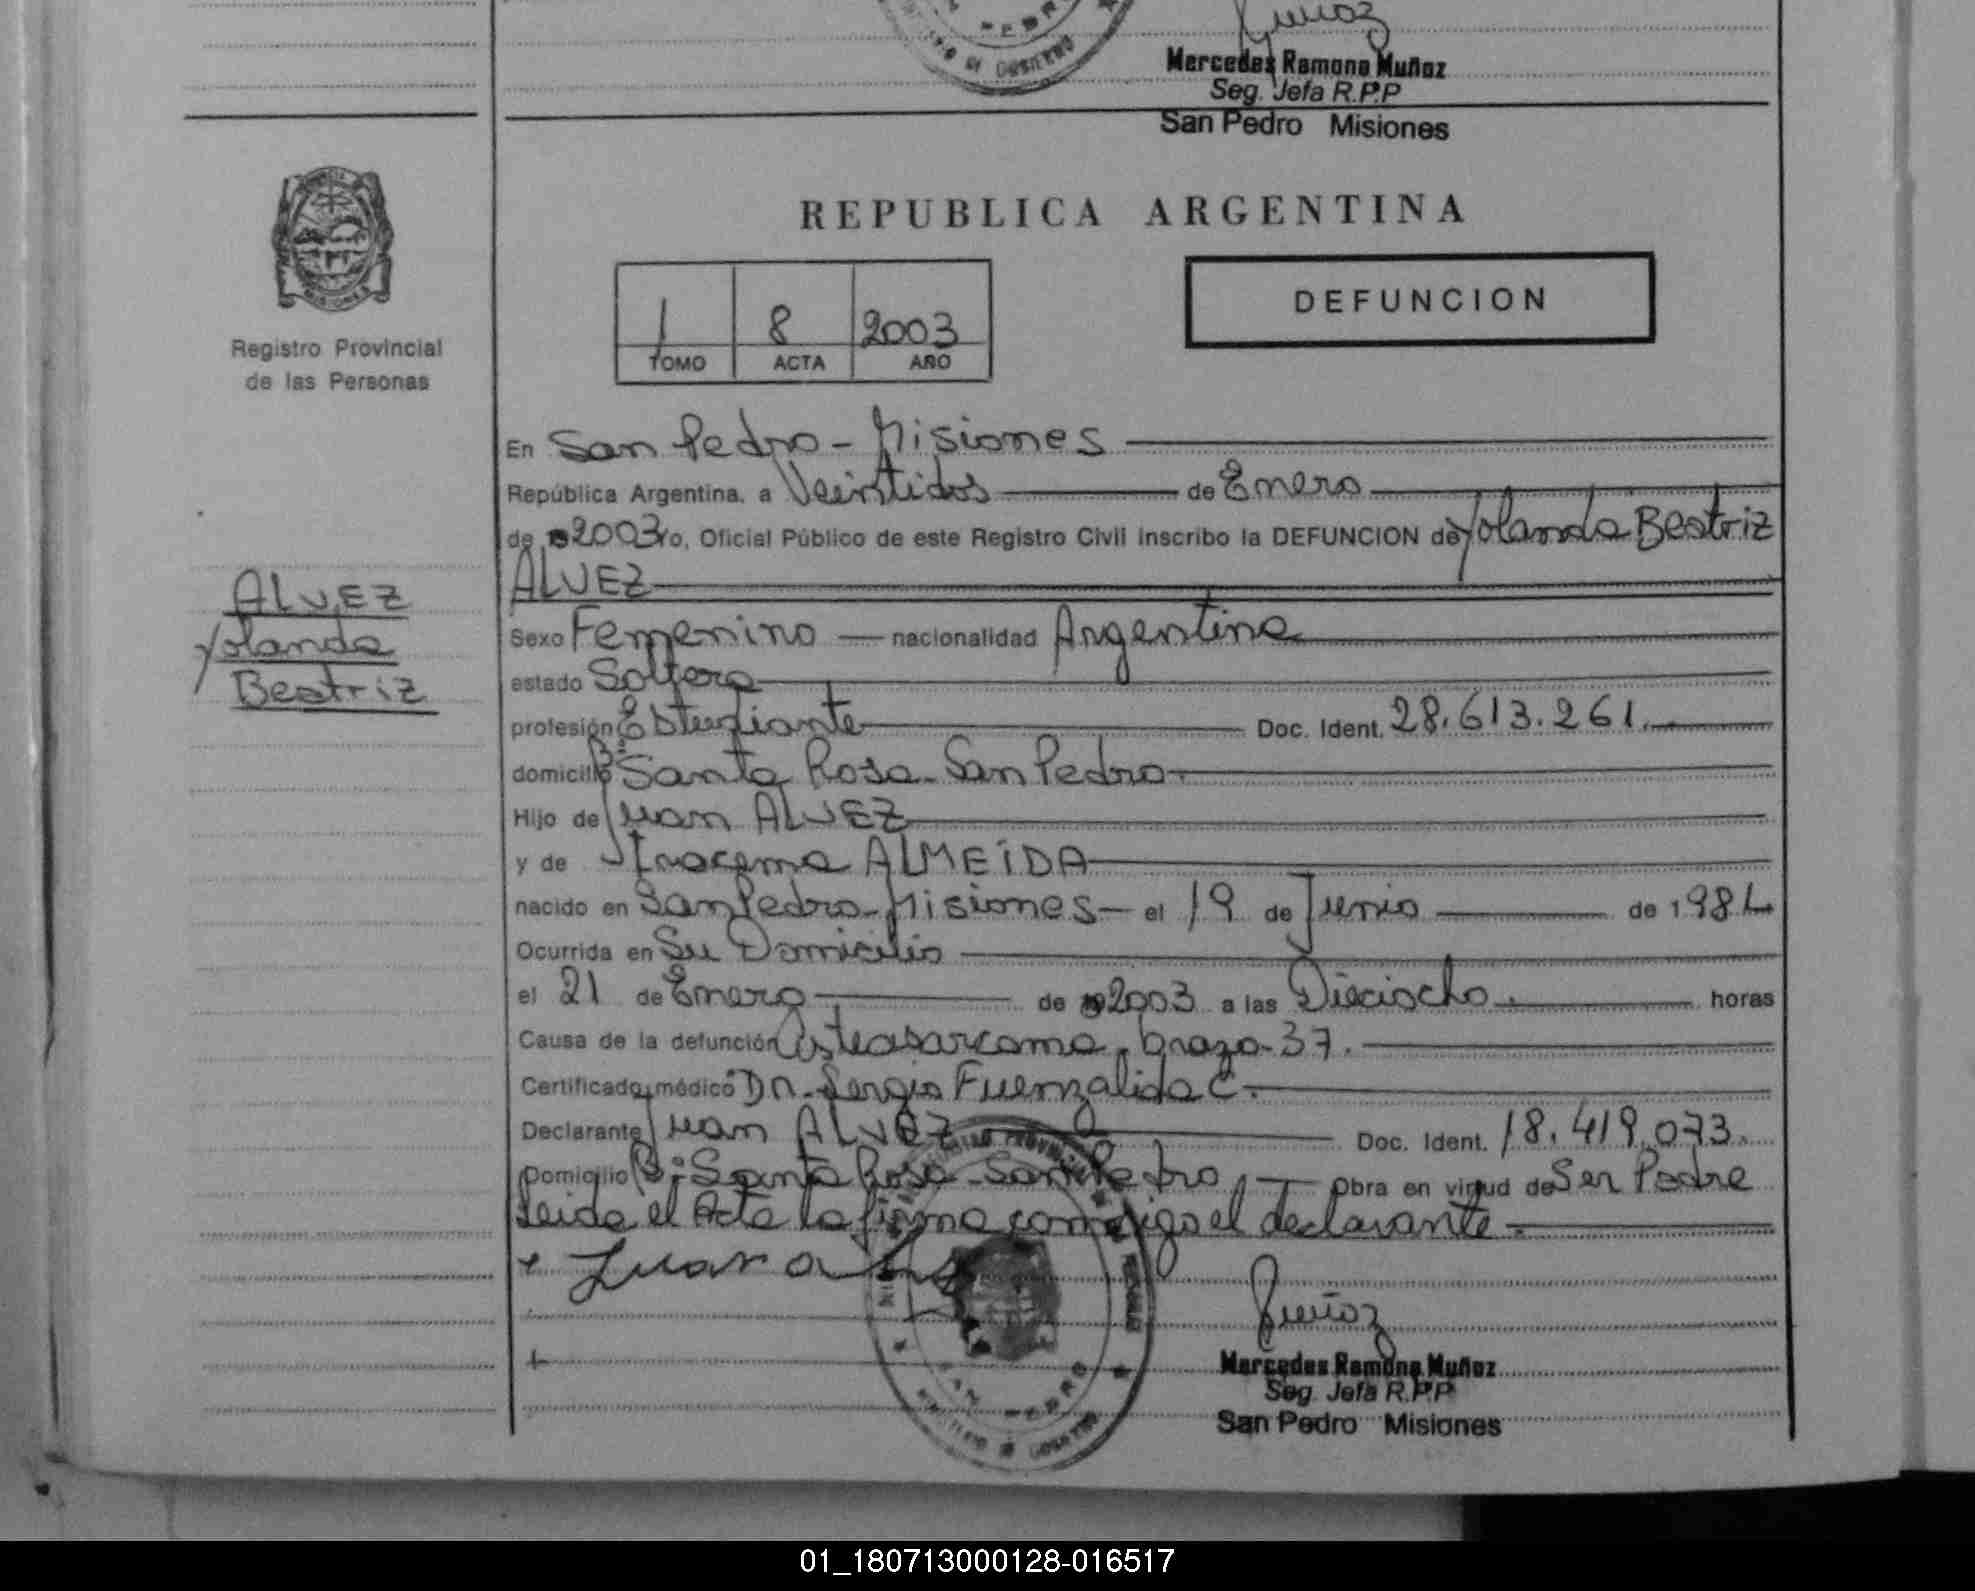 Muñoz
Mercedes Ramona Muñoz
Seg. Jefa R.P.P
San Pedro Misiones
REPUBLICA ARGENTINA
1 8 2003
TOMO ACTA AÑO
DEFUNCION
Registro Provincial
de las Personas
En San Pedro - Misiones
República Argentina, a Veintidos de Enero
de 2003 ro, Oficial Público de este Registro Civil inscribo la DEFUNCION de Yolanda Beatriz
ALVEZ
ALVEZ
Yolanda
Beatriz
Sexo Femenino nacionalidad Argentina
estado Soltera
profesión Estudiante Doc. Ident. 28.613.261.
domicilio Bº Santa Rosa - San Pedro
Hijo de Juan ALVEZ
y de Iracema ALMEIDA
nacido en San Pedro - Misiones - el 19 de Junio de 1984
Ocurrida en Su Domicilio
el 21 de Enero de 2003 a las Dieciocho. horas
Causa de la defunción Osteasarcoma. brazo - 37.
Certificado médico Dr. Sergio Fuenzalida C.
Declarante Juan ALVEZ Doc. Ident. 18.419.073.
Domicilio Bº: Santa Rosa - San Pedro Obra en virtud de Ser Padre
Leida el Acta la firma conmigo el declarante.
SAN PEDRO
Muñoz
Mercedes Ramona Muñoz
Seg. Jefa R.P.P
San Pedro Misiones
01_180713000128-016517